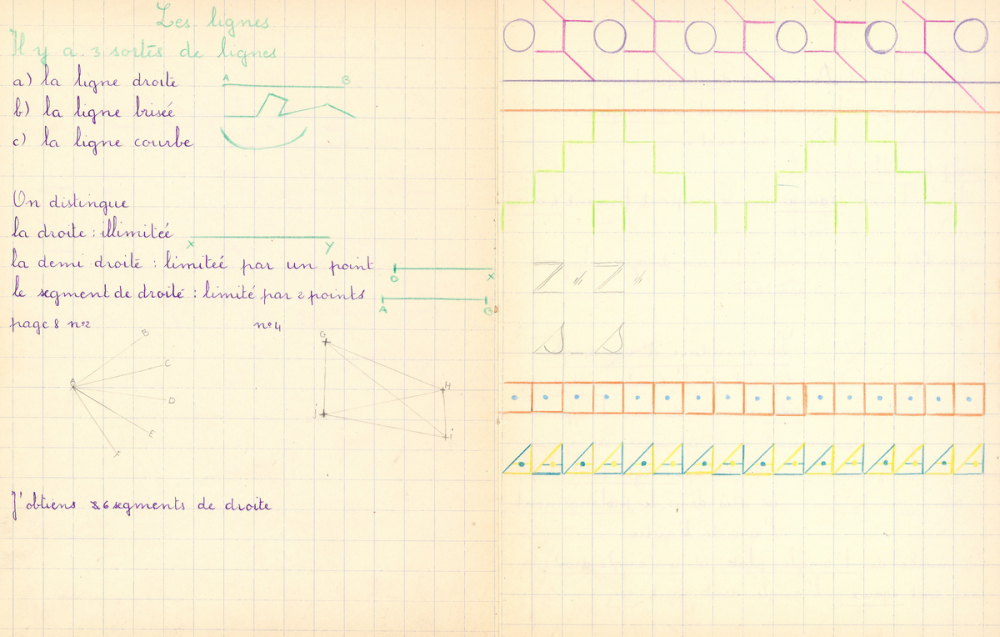 Les lignes
Il y a 3 sortes de lignes
a) la ligne droite
A B
b) la ligne brisée
c) la ligne courbe
On distingue
la droite : illimitée
x y
la demi droite : limiteé par un point
O x
le segment de droite : limité par 2 points
A B
page 8 n°2
n°4
B
C
A
D
E
F
G
H
j
i
J'obtiens 6 segments de droite